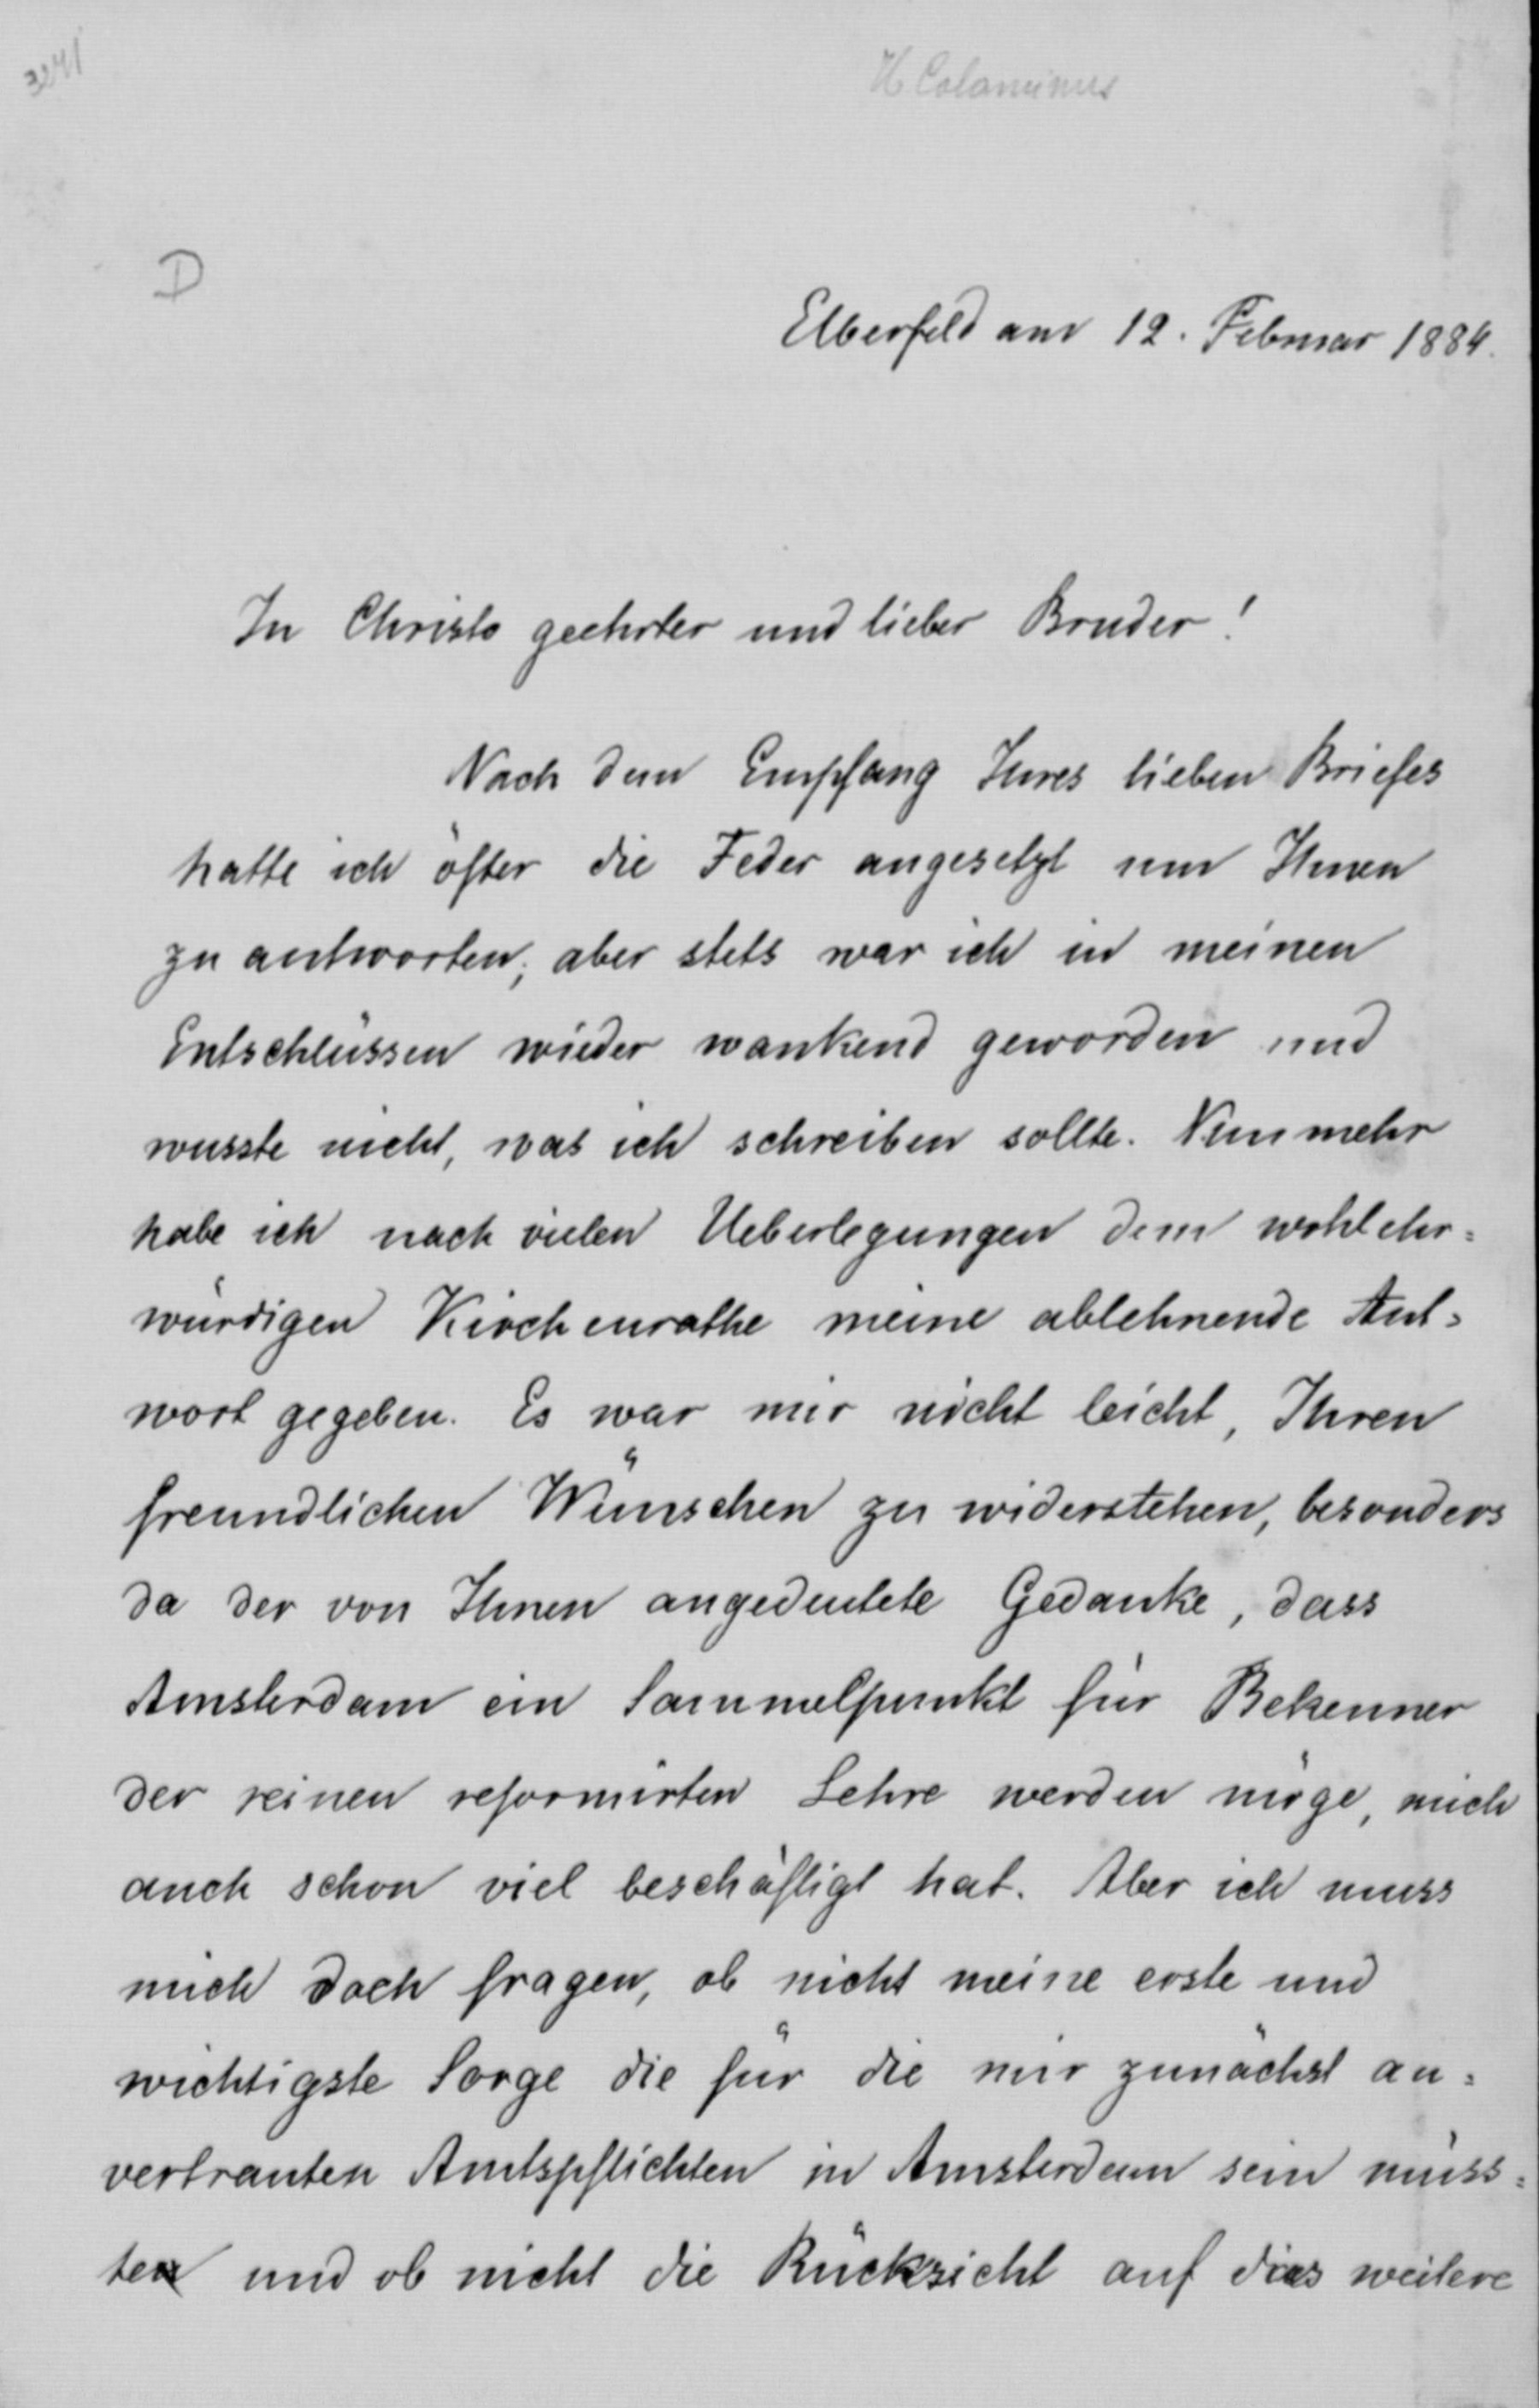 3241
H Calaminus
D
Elberfeld am 12. Februar 1884.
In Christo geehrter und lieber Bruder!
Nach dem Empfang Ihres lieben Briefes
hatte ich öfter die Feder angesetzt um Ihnen
zu antworten; aber stets war ich in meinen
Entschlüssen wieder wankend geworden und
wusste nicht, was ich schreiben sollte. Nunmehr
habe ich nach vielen Ueberlegungen dem wohlehr=
würdigen Kirchenrathe meine ablehnende Ant=
wort gegeben. Es war mir nicht leicht, Ihren
freundlichen Wünschen zu widerstehen, besonders
da der von Ihnen angedeutete Gedanke, dass
Amsterdam ein Sammelpunkt für Bekenner
der reinen reformirten Lehre werden möge, mich
auch schon viel beschäftigt hat. Aber ich muss
mich doch fragen, ob nicht meine erste und
wichtigste Sorge die für die mir zunächst an=
vertrauten Amtspflichten in Amsterdam sein müss=
te und ob nicht die Rücksicht auf das weitere